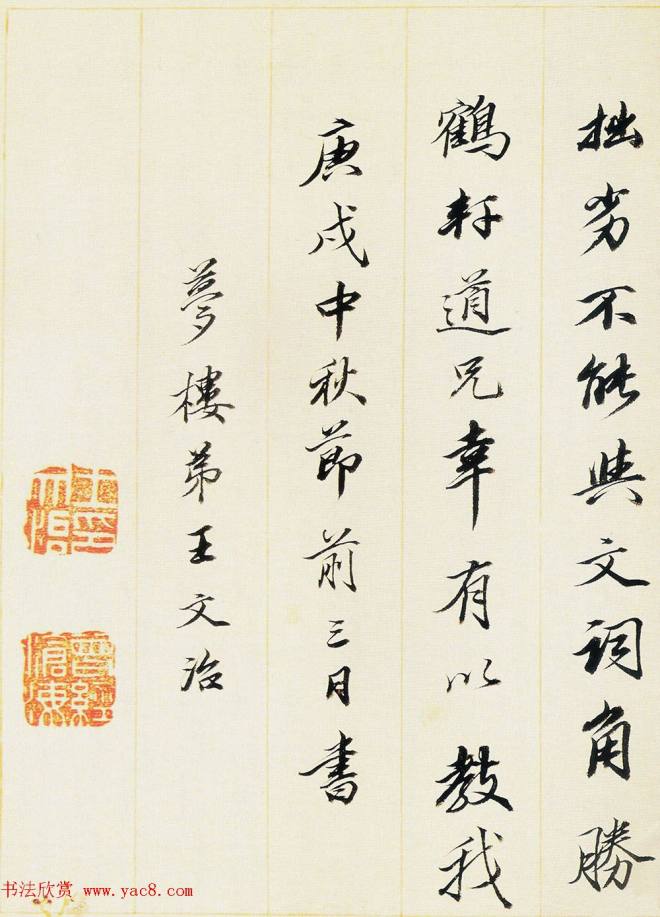 拙劣不能與文詞角勝
鶴軒道兄幸有以教我
庚戌中秋節前三日書
夢樓弟王文治
王文治印
曾經滄海
书法欣赏 www.yac8.com